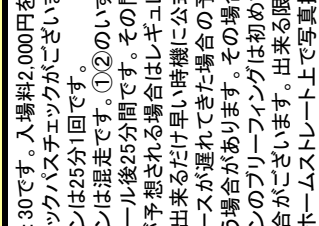 :30です。入場料2,000円を
ックパスチェックがございま
ンは25分1回です。
ンは混走です。①②のいず
ール後25分間です。その間
が予想される場合はレギュレ
出来るだけ早い時機に公式
ースが遅れてきた場合の予
う場合があります。その場合
ンのブリーフィングは初め
合がございます。出来る限
ホームストレート上で写真撮